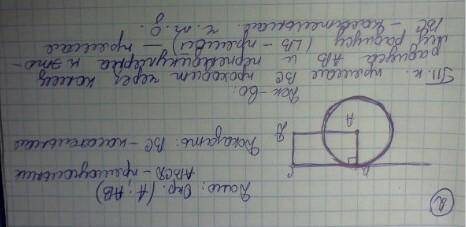 2)
Дано: Окр. (A; AB)
ABCD - прямоугольник
Доказать: BC - касательная
A
Док-во:
Т.к. прямая BC проходит через конец
радиуса AB и перпендикулярна к это-
му радиусу (∠B - прямой) - прямая
BC - касательная. ч.т.д.